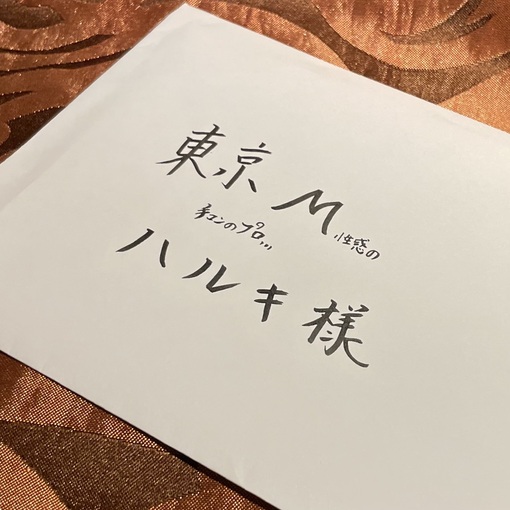 東京M性感の
手コンのプロ,,,
ハルキ様